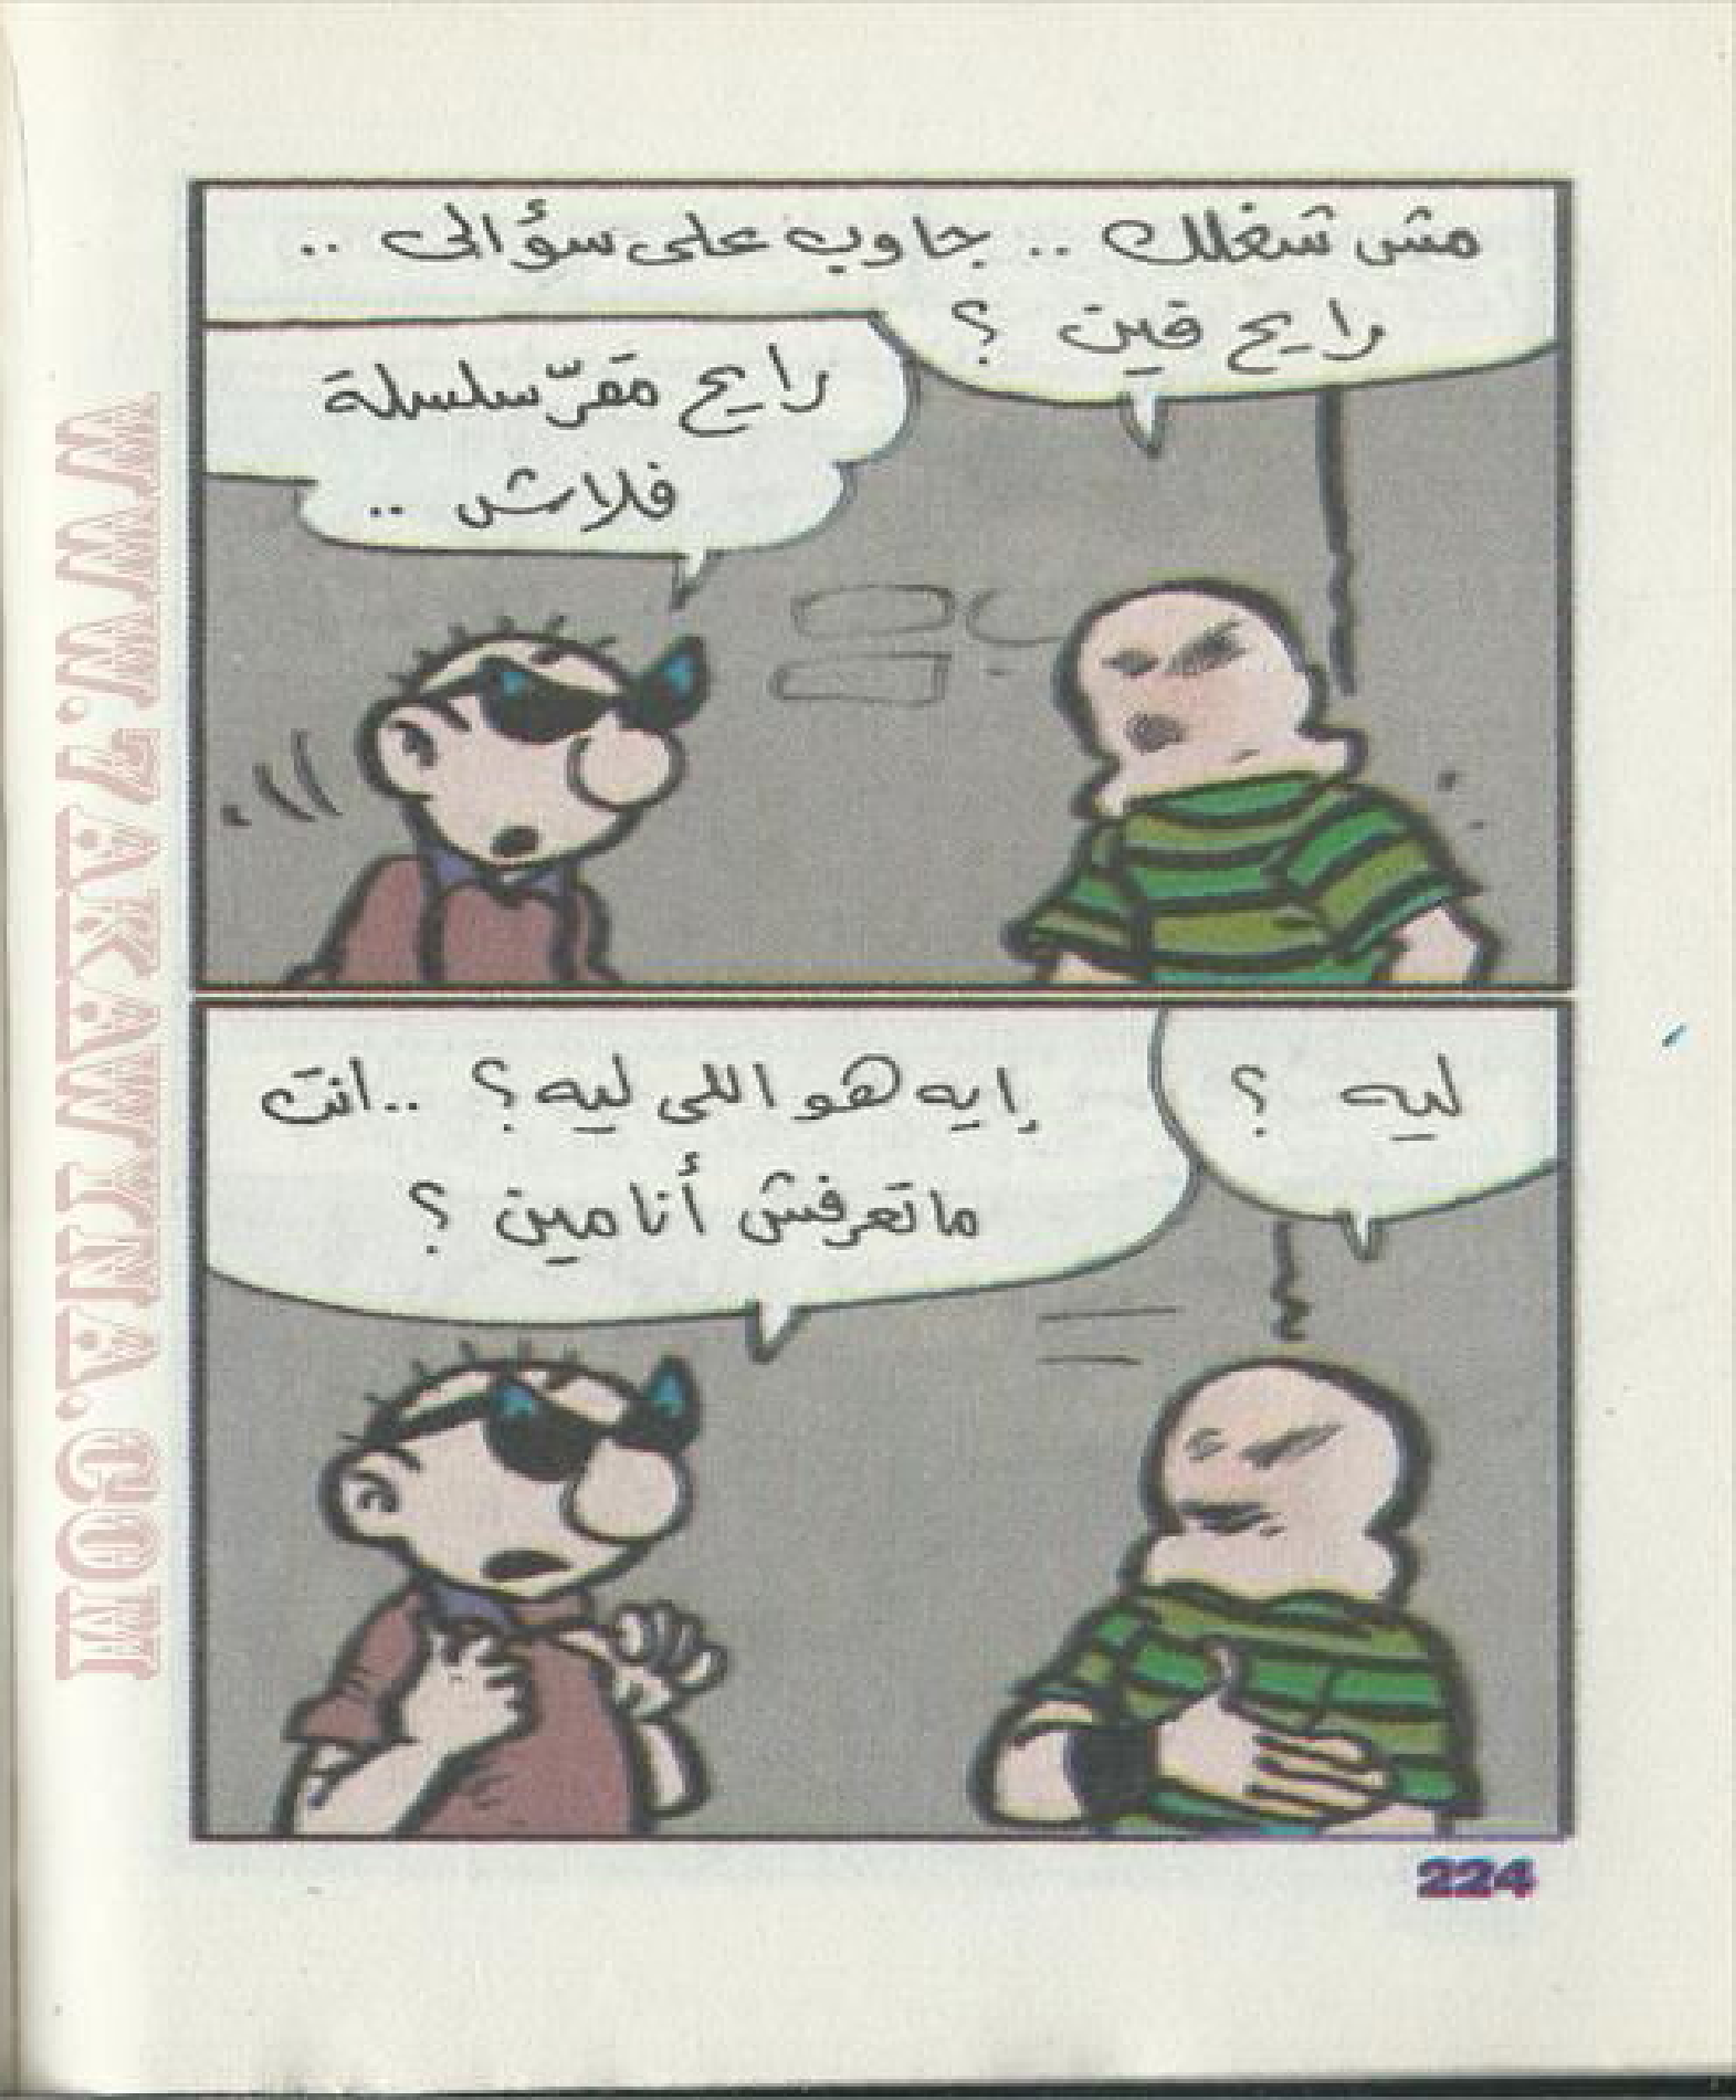 مش شغلك .. جاوب على سؤالى ..
رايح فين ؟
رايح مقرّ سلسلة
فلاش ..
ليه ؟
إيه هو اللى ليه ؟ .. انت
ماتعرفش أنا مين ؟
224
WWW.7AKAWTNA.COM